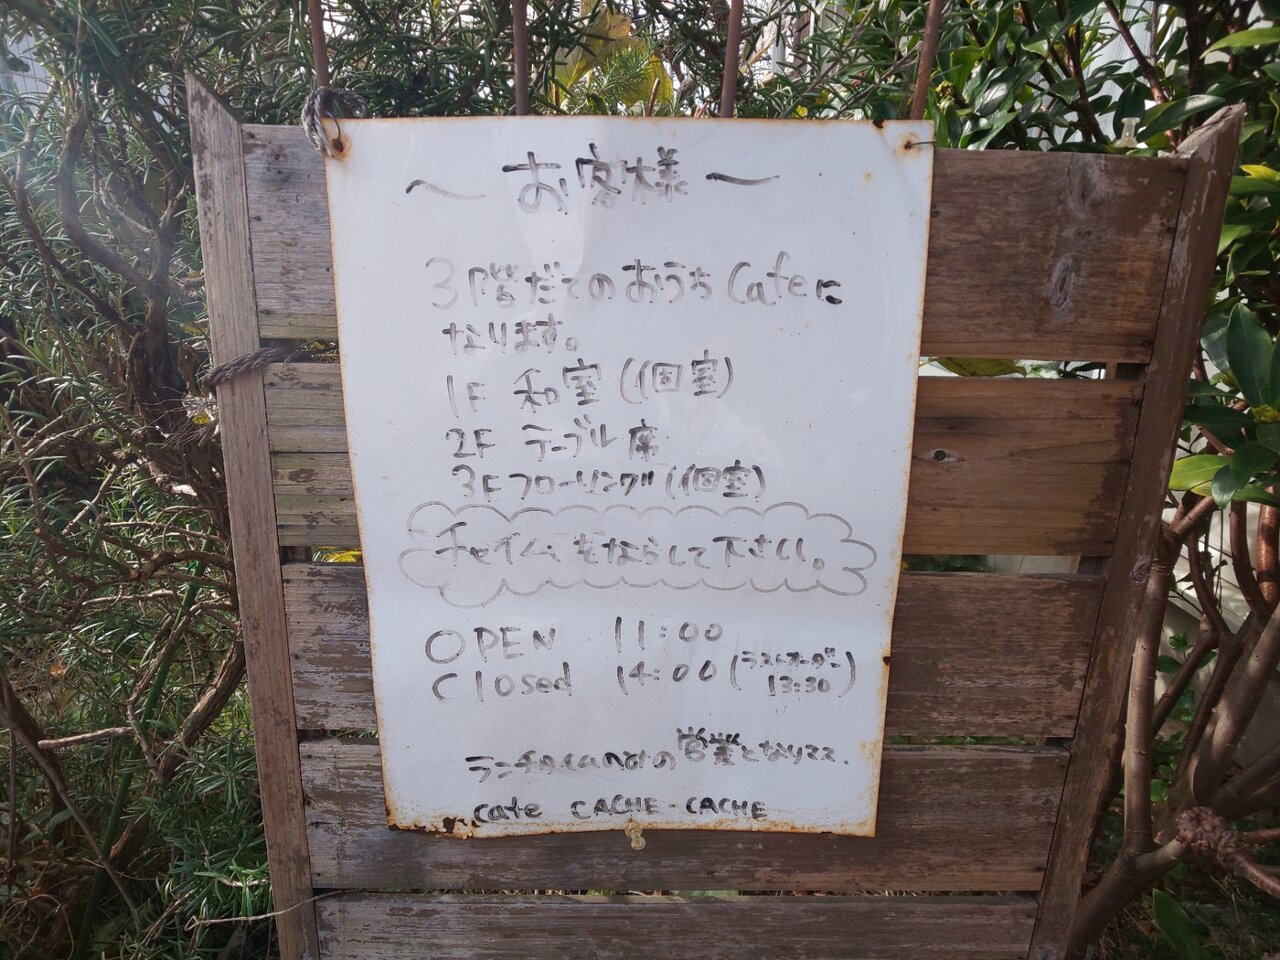 〜お客様〜
3階だてのおうちCafeに
なります。
1F 和室(個室)
2F テーブル席
3Fフローリング(個室)
チャイムをならして下さい。
OPEN 11:00
Closed 14:00(ラストオーダー
13:30)
ランチのみの営業となります.
cafe CACHE-CACHE